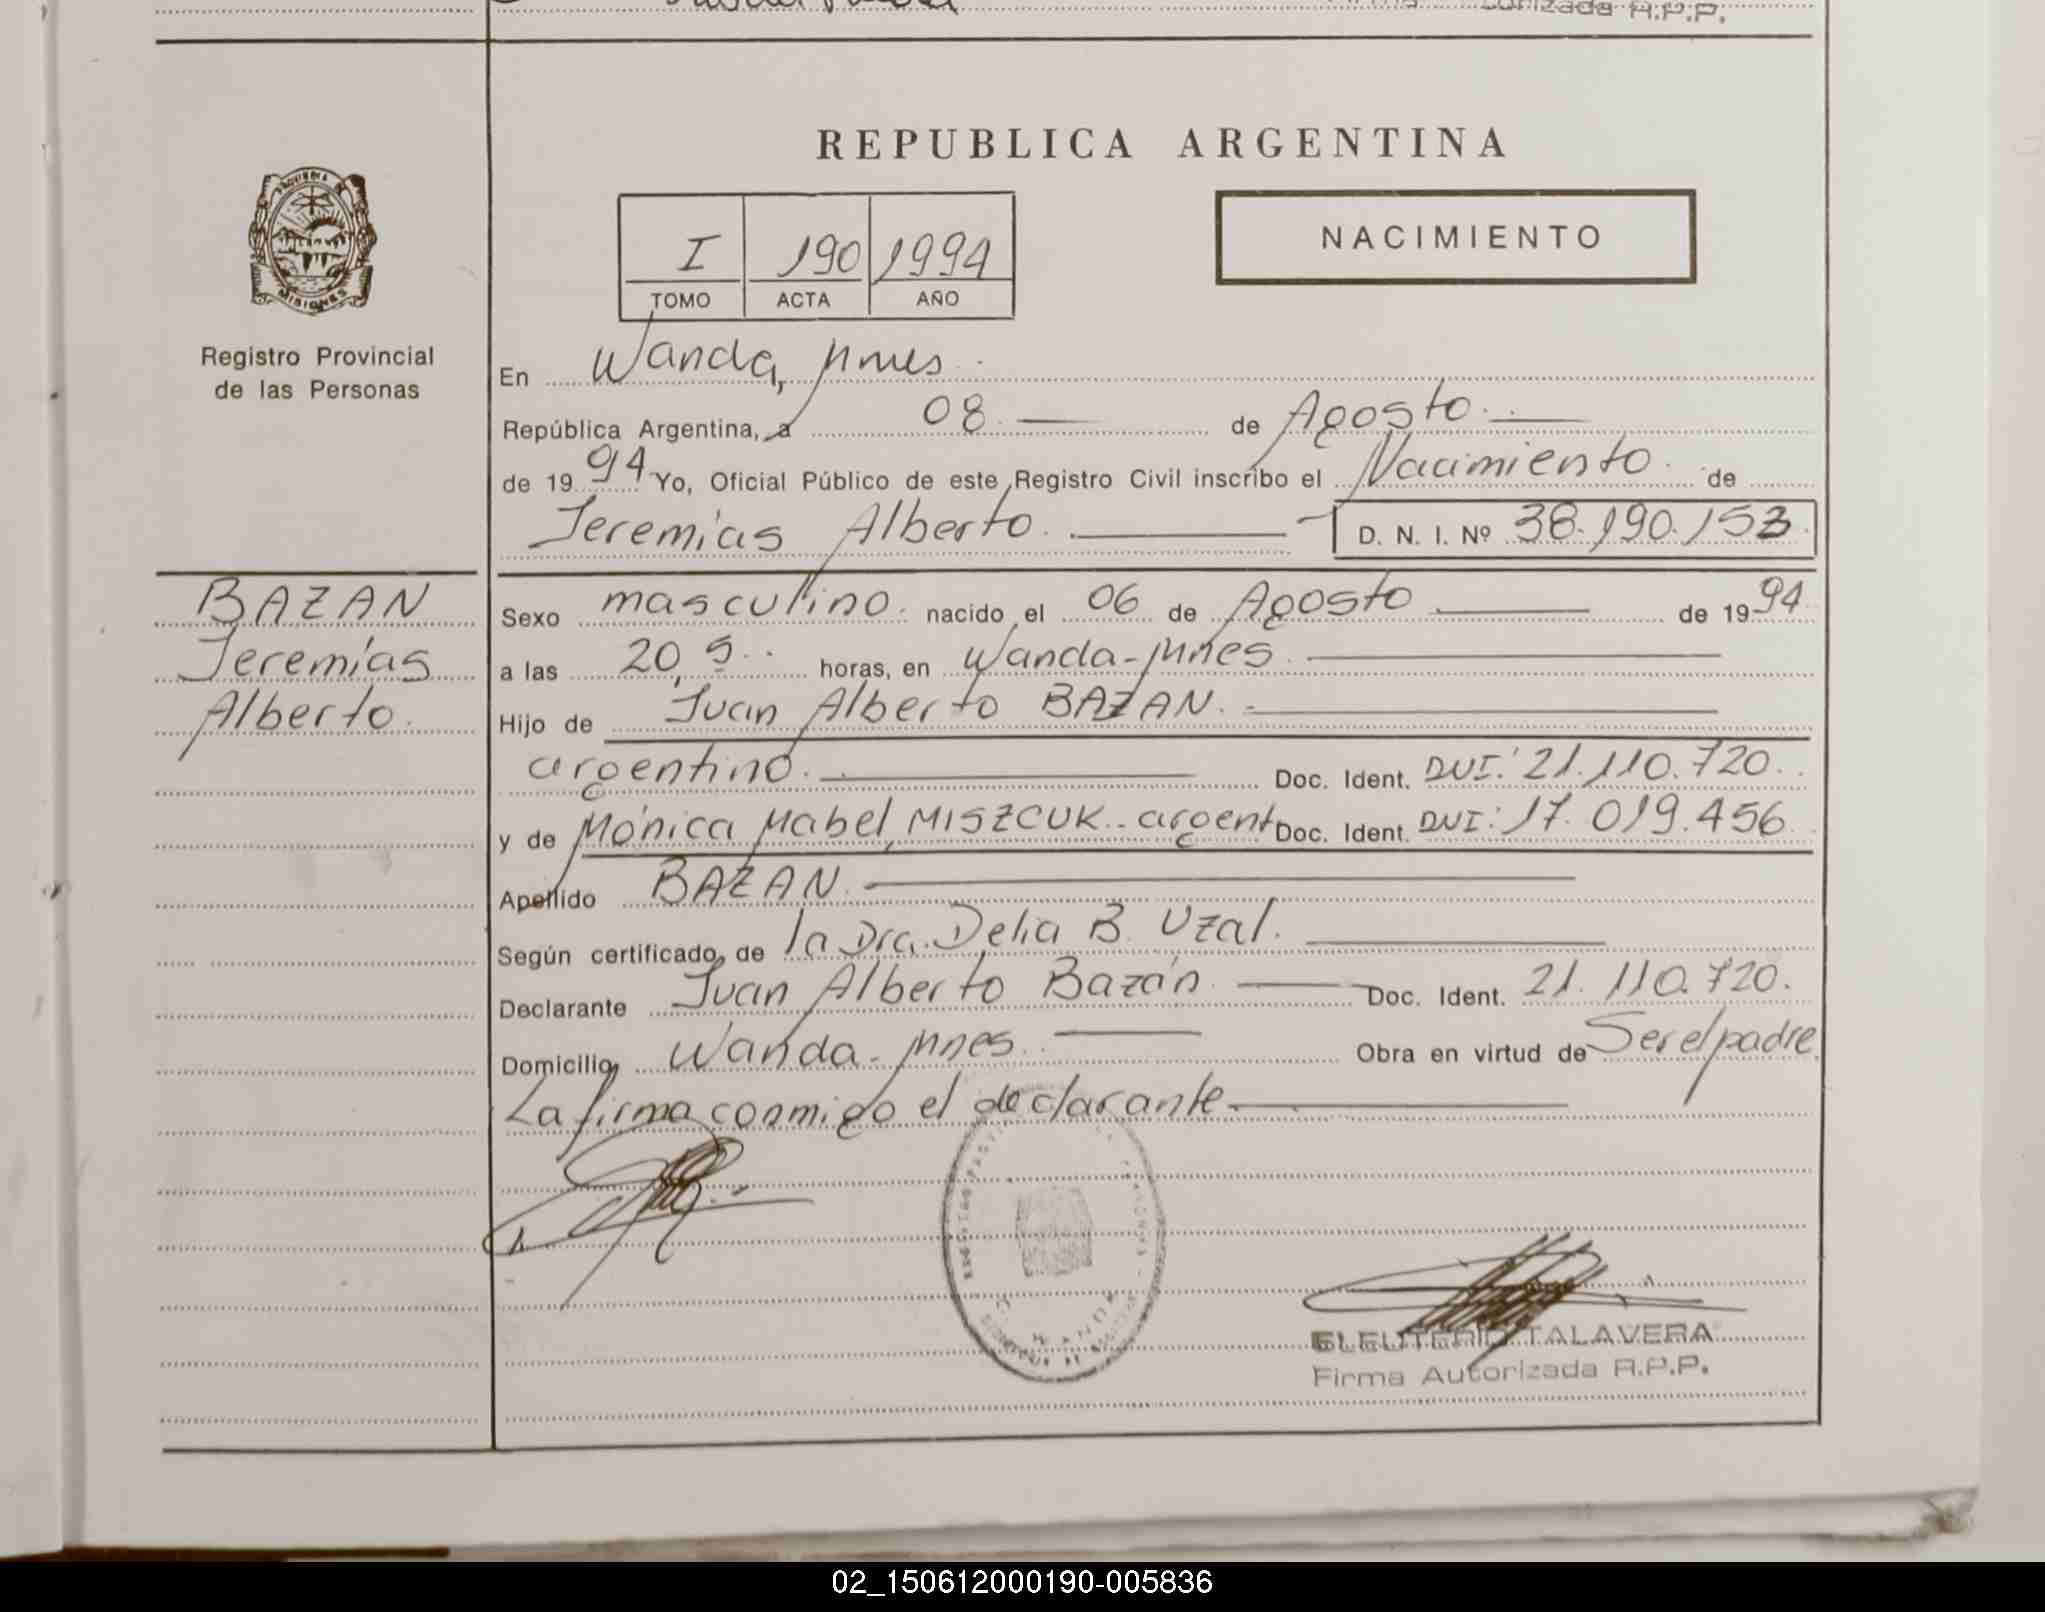 Autorizada R.P.P.
REPUBLICA ARGENTINA
PROVINCIA DE
MISIONES
Registro Provincial
de las Personas
I 190 1994
TOMO ACTA AÑO
NACIMIENTO
En Wanda, Mnes
República Argentina, a 08 de Agosto
de 1994 Yo, Oficial Público de este Registro Civil inscribo el Nacimiento de
Jeremías Alberto. D. N. I. Nº 38.190.153
BAZAN
Jeremías
Alberto.
Sexo masculino. nacido el 06 de Agosto de 1994
a las 20,5 horas, en Wanda-Mnes
Hijo de Juan Alberto BAZAN.
argentino. Doc. Ident. DNI: 21.110.720.
y de Mónica Mabel MISZCUK - argent Doc. Ident. DNI: 17.019.456
Apellido BAZAN
Según certificado de la Dra. Delia B. Uzal.
Declarante Juan Alberto Bazán Doc. Ident. 21.110.720.
Domicilio Wanda-Mnes. Obra en virtud de Ser el padre
La firma conmigo el declarante
WANDA
ELEUTERIO TALAVERA
Firma Autorizada R.P.P.
02_150612000190-005836